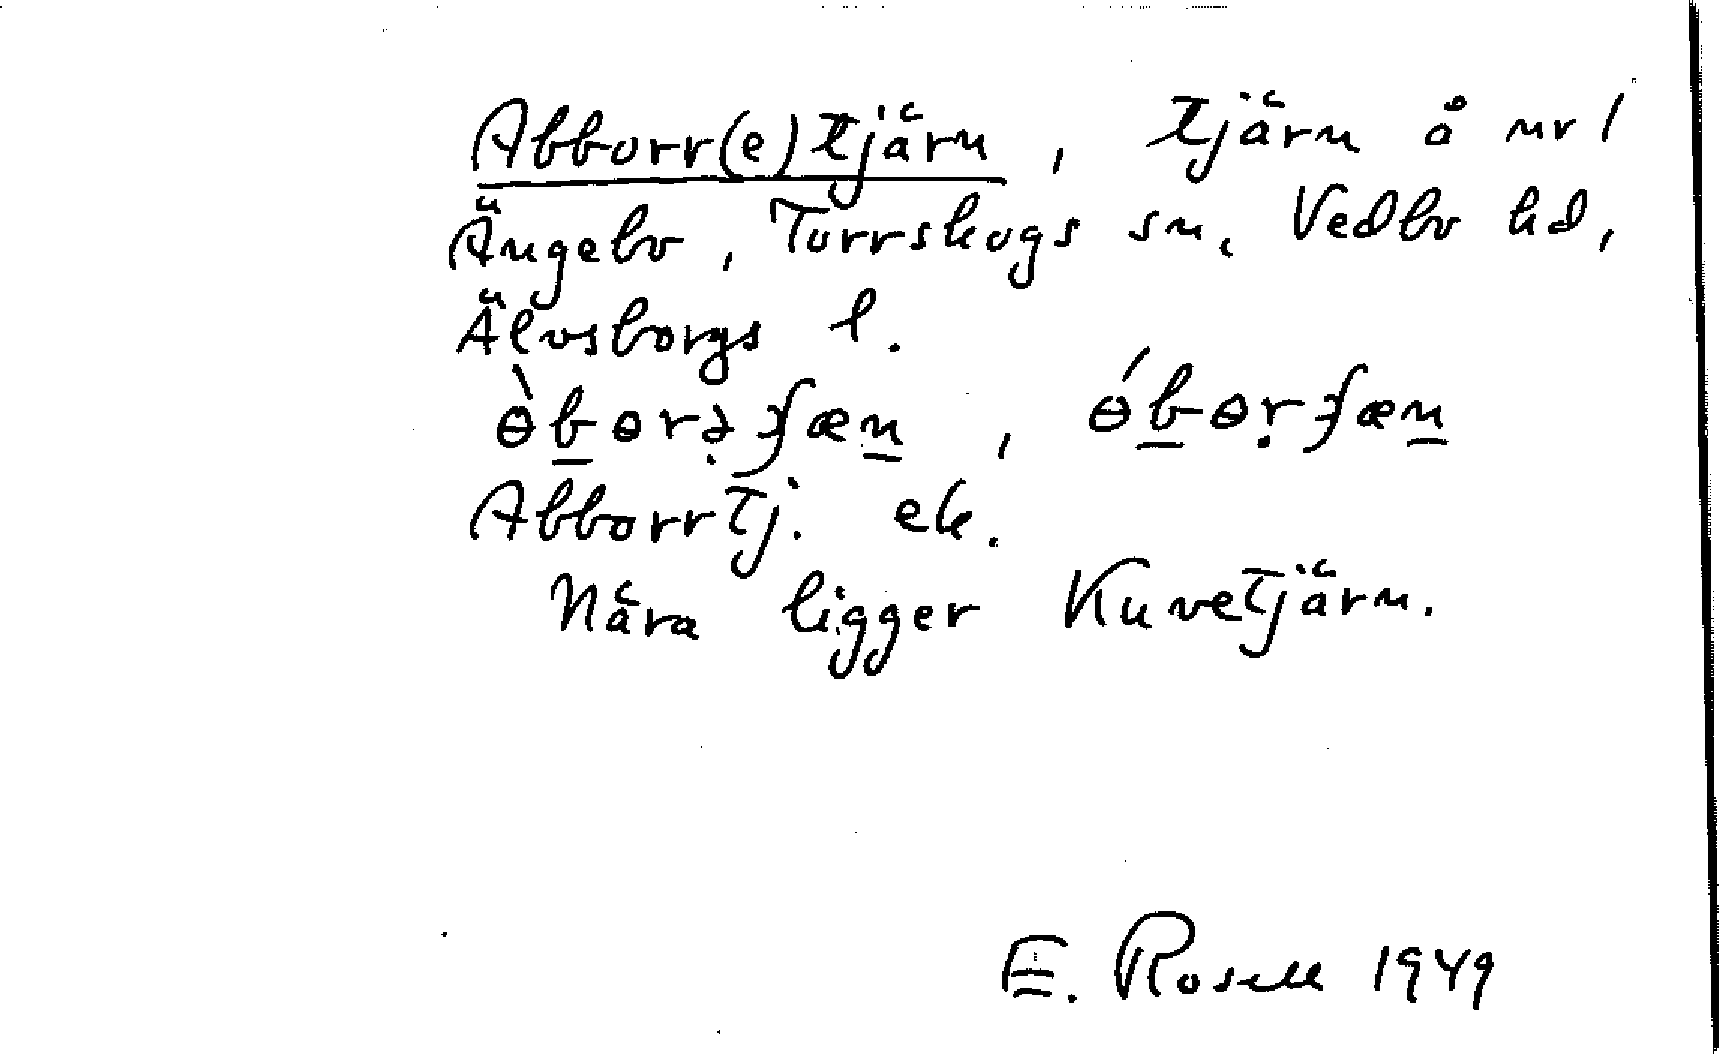 Abborr(e)tjärn, tjärn å nr 1
Ängebo, Torrskogs sn, Vedbo hd,
Älvsborgs l.
ɵ̀bɵrə̣ʃæn, ɵ́bɵṛʃæn
Abborrtj. ek.
Nära ligger Kuvetjärn.
E. Rosell 1949